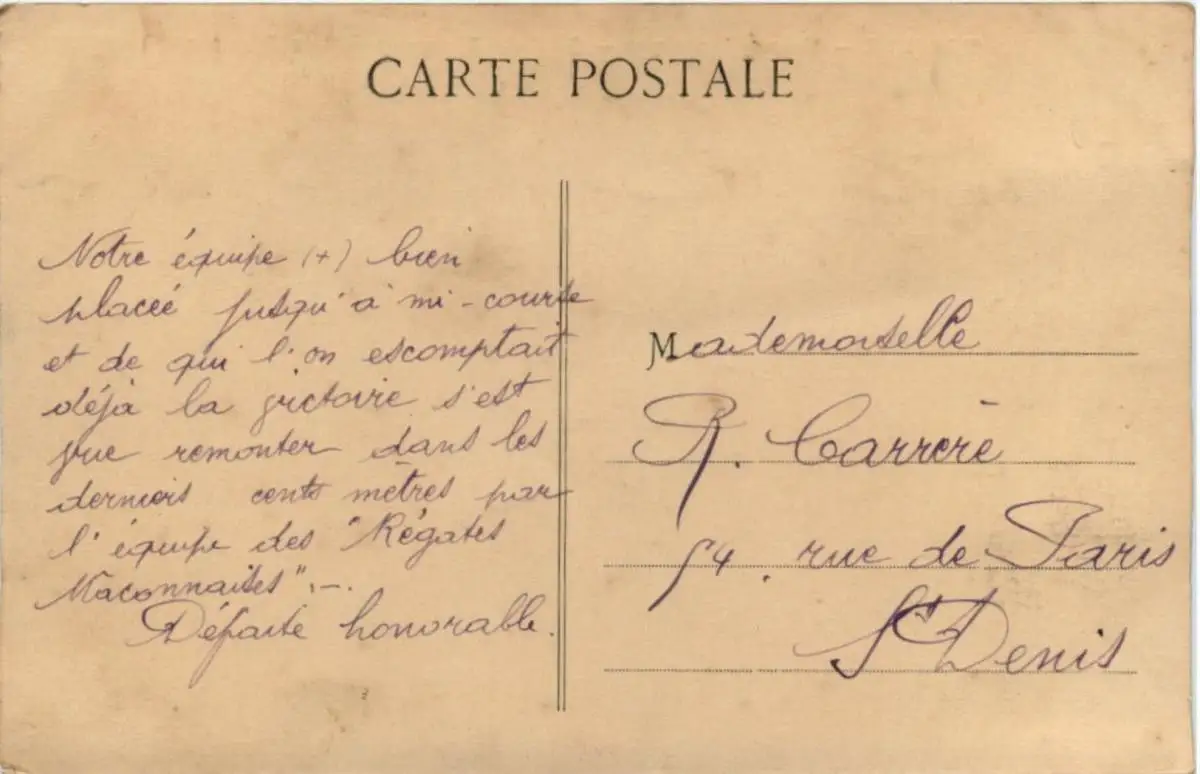 CARTE POSTALE
Notre équipe (+) bien
placée jusqu'à mi-course
et de qui l'on escomptait
déjà la victoire s'est
vue remonter dans les
derniers cents mètres par
l'équipe des "Régates
Maconnaises".-.
Défaite honorable.
Mademoiselle
R. Carrère
54, rue de Paris
St Denis